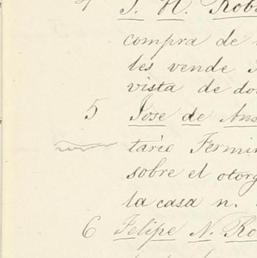 4 J. H. Rob
compra de
les vende
vista de do
5 Jose de Ans
tario Fermin
sobre el otorg
la casa n.
6 Felipe N. Ro